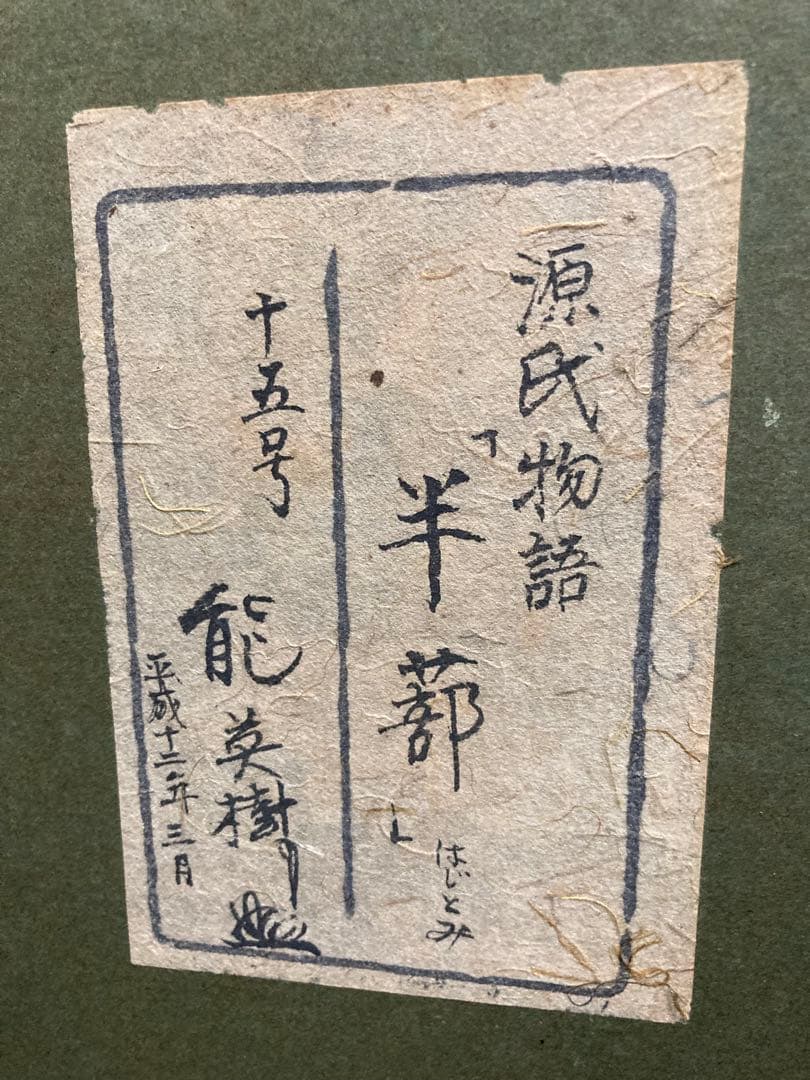 源氏物語
「半蔀」
はじとみ
十五号
能英樹
平成十二年三月